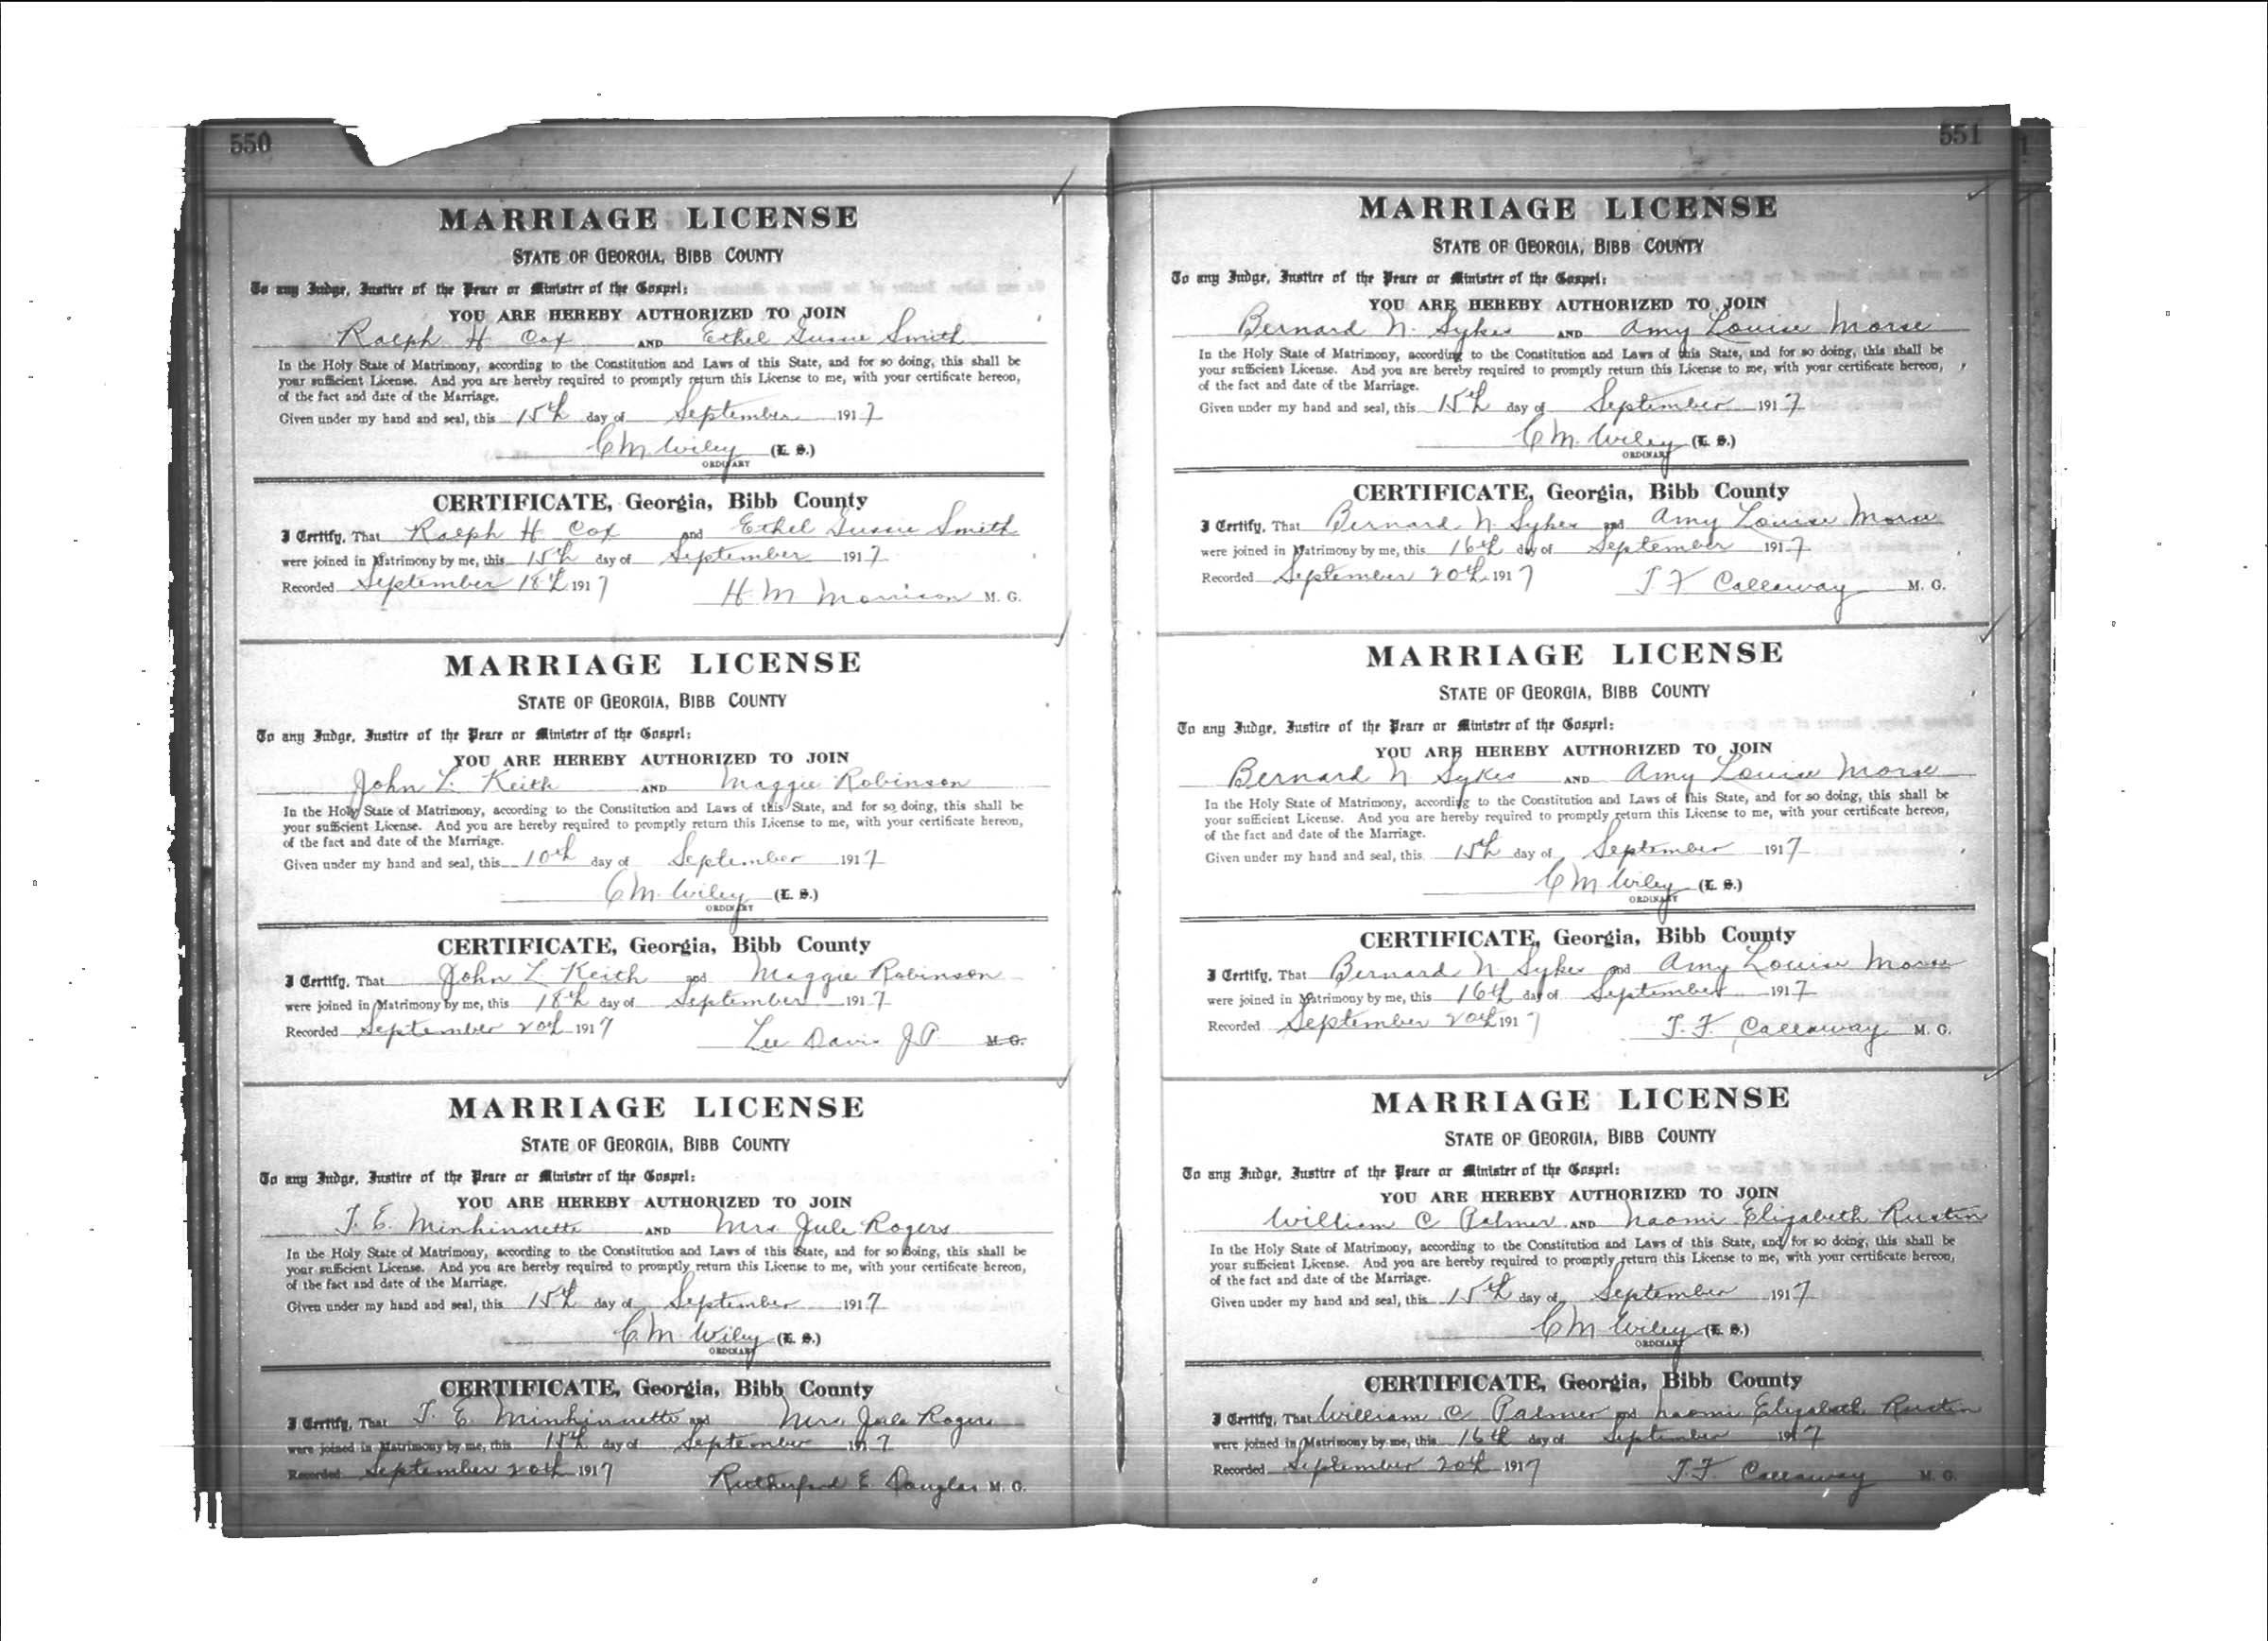 550
MARRIAGE LICENSE
STATE OF GEORGIA, BIBB COUNTY
To any Judge, Justice of the Peace or Minister of the Gospel:
YOU ARE HEREBY AUTHORIZED TO JOIN
Ralph H Cox AND Ethel Gussie Smith
In the Holy State of Matrimony, according to the Constitution and Laws of this State, and for so doing, this shall be
your sufficient License. And you are hereby required to promptly return this License to me, with your certificate hereon,
of the fact and date of the Marriage.
Given under my hand and seal, this 15th day of September 1917
C M Wiley (L. S.)
ORDINARY
CERTIFICATE, Georgia, Bibb County
I Certify, That Ralph H Cox and Ethel Gussie Smith
were joined in Matrimony by me, this 15th day of September 1917
Recorded September 18th 1917
H M Morrison M. G.
MARRIAGE LICENSE
STATE OF GEORGIA, BIBB COUNTY
To any Judge, Justice of the Peace or Minister of the Gospel:
YOU ARE HEREBY AUTHORIZED TO JOIN
John L. Keith AND Maggie Robinson
In the Holy State of Matrimony, according to the Constitution and Laws of this State, and for so doing, this shall be
your sufficient License. And you are hereby required to promptly return this License to me, with your certificate hereon,
of the fact and date of the Marriage.
Given under my hand and seal, this 10th day of September 1917
C M. Wiley (L. S.)
ORDINARY
CERTIFICATE, Georgia, Bibb County
I Certify, That John L Keith and Maggie Robinson
were joined in Matrimony by me, this 18th day of September 1917
Recorded September 20th 1917
Lee Davis J.P. M. G.
MARRIAGE LICENSE
STATE OF GEORGIA, BIBB COUNTY
To any Judge, Justice of the Peace or Minister of the Gospel:
YOU ARE HEREBY AUTHORIZED TO JOIN
T. E. Minhinnette AND Mrs Jule Rogers
In the Holy State of Matrimony, according to the Constitution and Laws of this State, and for so doing, this shall be
your sufficient License. And you are hereby required to promptly return this License to me, with your certificate hereon,
of the fact and date of the Marriage.
Given under my hand and seal, this 15th day of September 1917
C. M. Wiley (L. S.)
ORDINARY
CERTIFICATE, Georgia, Bibb County
I Certify, That T. E. Minhinnette and Mrs Jule Rogers
were joined in Matrimony by me, this 15th day of September 1917
Recorded September 20th 1917
Rutherford E. Douglas M. G.
551
MARRIAGE LICENSE
STATE OF GEORGIA, BIBB COUNTY
To any Judge, Justice of the Peace or Minister of the Gospel:
YOU ARE HEREBY AUTHORIZED TO JOIN
Bernard N. Sykes AND Amy Louise Morse
In the Holy State of Matrimony, according to the Constitution and Laws of this State, and for so doing, this shall be
your sufficient License. And you are hereby required to promptly return this License to me, with your certificate hereon,
of the fact and date of the Marriage.
Given under my hand and seal, this 15th day of September 1917
C M. Wiley (L. S.)
ORDINARY
CERTIFICATE, Georgia, Bibb County
I Certify, That Bernard N. Sykes and Amy Louise Morse
were joined in Matrimony by me, this 16th day of September 1917
Recorded September 20th 1917
T F Callaway M. G.
MARRIAGE LICENSE
STATE OF GEORGIA, BIBB COUNTY
To any Judge, Justice of the Peace or Minister of the Gospel:
YOU ARE HEREBY AUTHORIZED TO JOIN
Bernard N Sykes AND Amy Louise Morse
In the Holy State of Matrimony, according to the Constitution and Laws of this State, and for so doing, this shall be
your sufficient License. And you are hereby required to promptly return this License to me, with your certificate hereon,
of the fact and date of the Marriage.
Given under my hand and seal, this 15th day of September 1917
C M Wiley (L. S.)
ORDINARY
CERTIFICATE, Georgia, Bibb County
I Certify, That Bernard N. Sykes and Amy Louise Morse
were joined in Matrimony by me, this 16th day of September 1917
Recorded September 20th 1917
T. F. Callaway M. G.
MARRIAGE LICENSE
STATE OF GEORGIA, BIBB COUNTY
To any Judge, Justice of the Peace or Minister of the Gospel:
YOU ARE HEREBY AUTHORIZED TO JOIN
William C Palmer AND Naomi Elizabeth Rustin
In the Holy State of Matrimony, according to the Constitution and Laws of this State, and for so doing, this shall be
your sufficient License. And you are hereby required to promptly return this License to me, with your certificate hereon,
of the fact and date of the Marriage.
Given under my hand and seal, this 15th day of September 1917
C M Wiley (L. S.)
ORDINARY
CERTIFICATE, Georgia, Bibb County
I Certify, That William C Palmer and Naomi Elizabeth Rustin
were joined in Matrimony by me, this 16th day of September 1917
Recorded September 20th 1917
T. F. Callaway M. G.